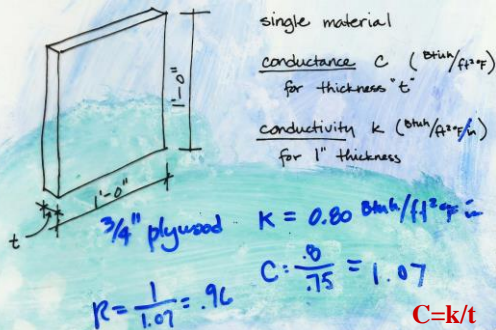 single material
conductance C (Btuh/ft²°F)
for thickness "t"
conductivity k (Btuh/ft²°F/in)
for 1" thickness
1'-0"
1'-0"
t
3/4" plywood K = 0.80 Btuh/ft²°F in
C = .8/.75 = 1.07
R = 1/1.07 = .96
C=k/t